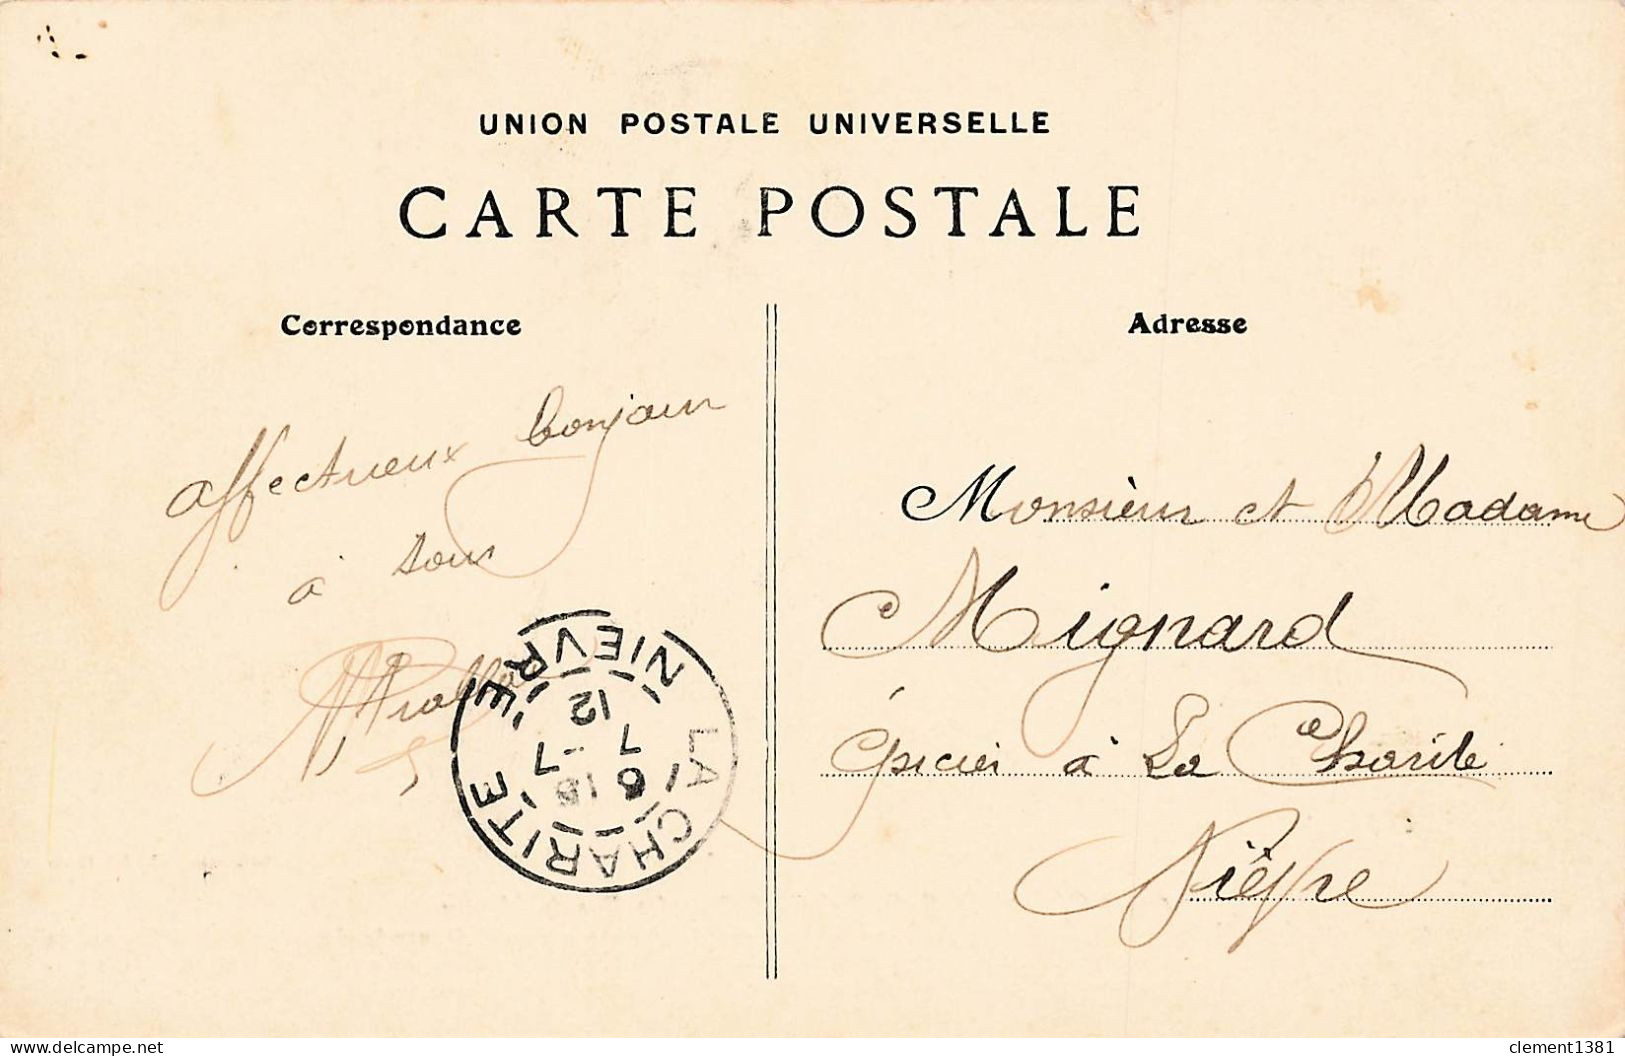 UNION POSTALE UNIVERSELLE
CARTE POSTALE
Correspondance
Adresse
affectueux bonjour
à tous
Monsieur et Madame
Mignard
Épicier à La Charité
Nièvre
LA CHARITE
NIEVRE
12
7 -7
delcampe.net
clement1381